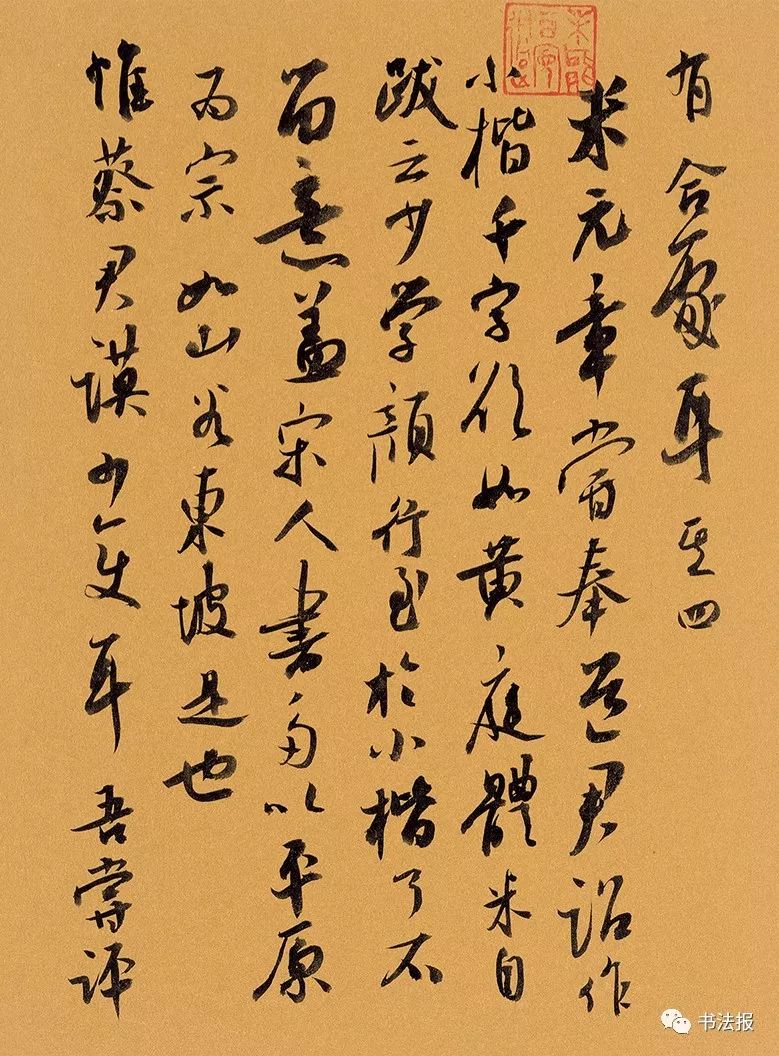 有合處耳 其四
米元章嘗奉道君詔作
小楷千字欲如黄庭體米自
跋云少學顔行至於小楷了不
留意盖宋人書多以平原
為宗如山谷東坡是也
惟蔡君謨少變耳吾嘗評
书法报